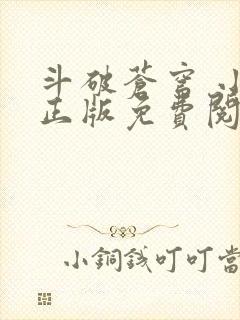 斗破蒼穹 小
正版免費閱
小銅錢叮叮當